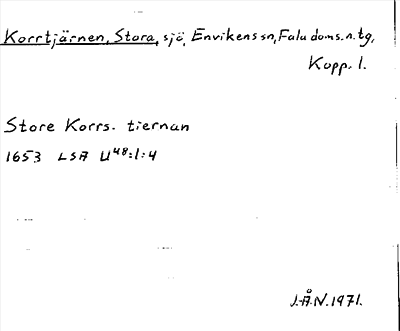 Korrtjärnen, Stora, sjö, Envikens sn, Falu doms.n.tg,
Kopp. l.
Store Korrs. tiernan
1653 LSA U48:1:4
J.Å.N. 1971.